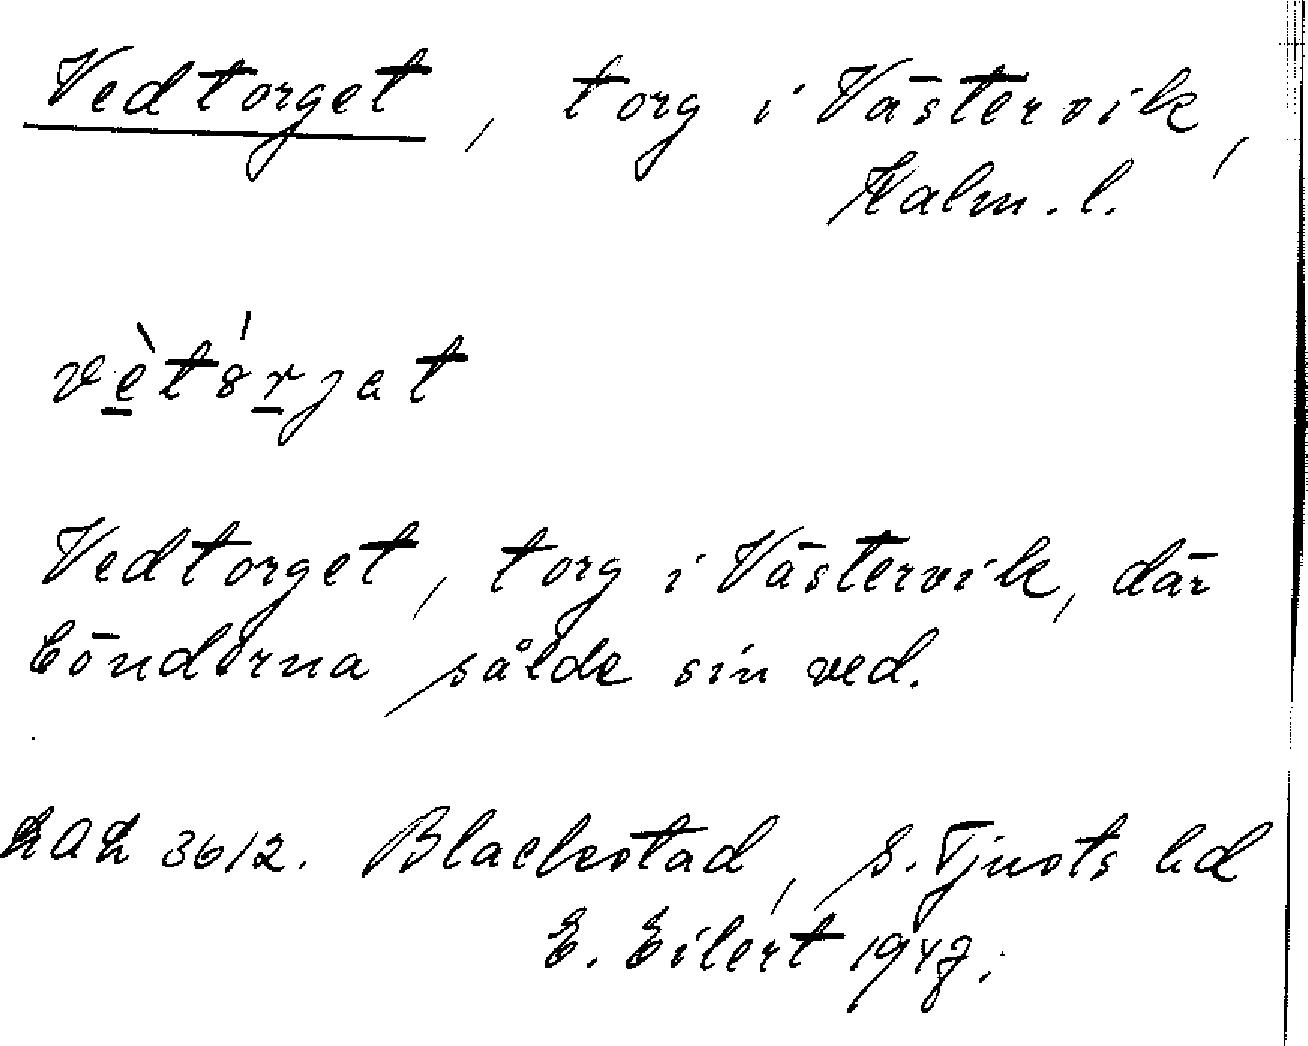 Vedtorget, torg i Västervik,
Kalm. l.
vètó̀rjat
Vedtorget, torg i Västervik, där
bönderna sålde sin ved.
3612. Blackstad, S. Tjusts hd
E. Eilert 1947.